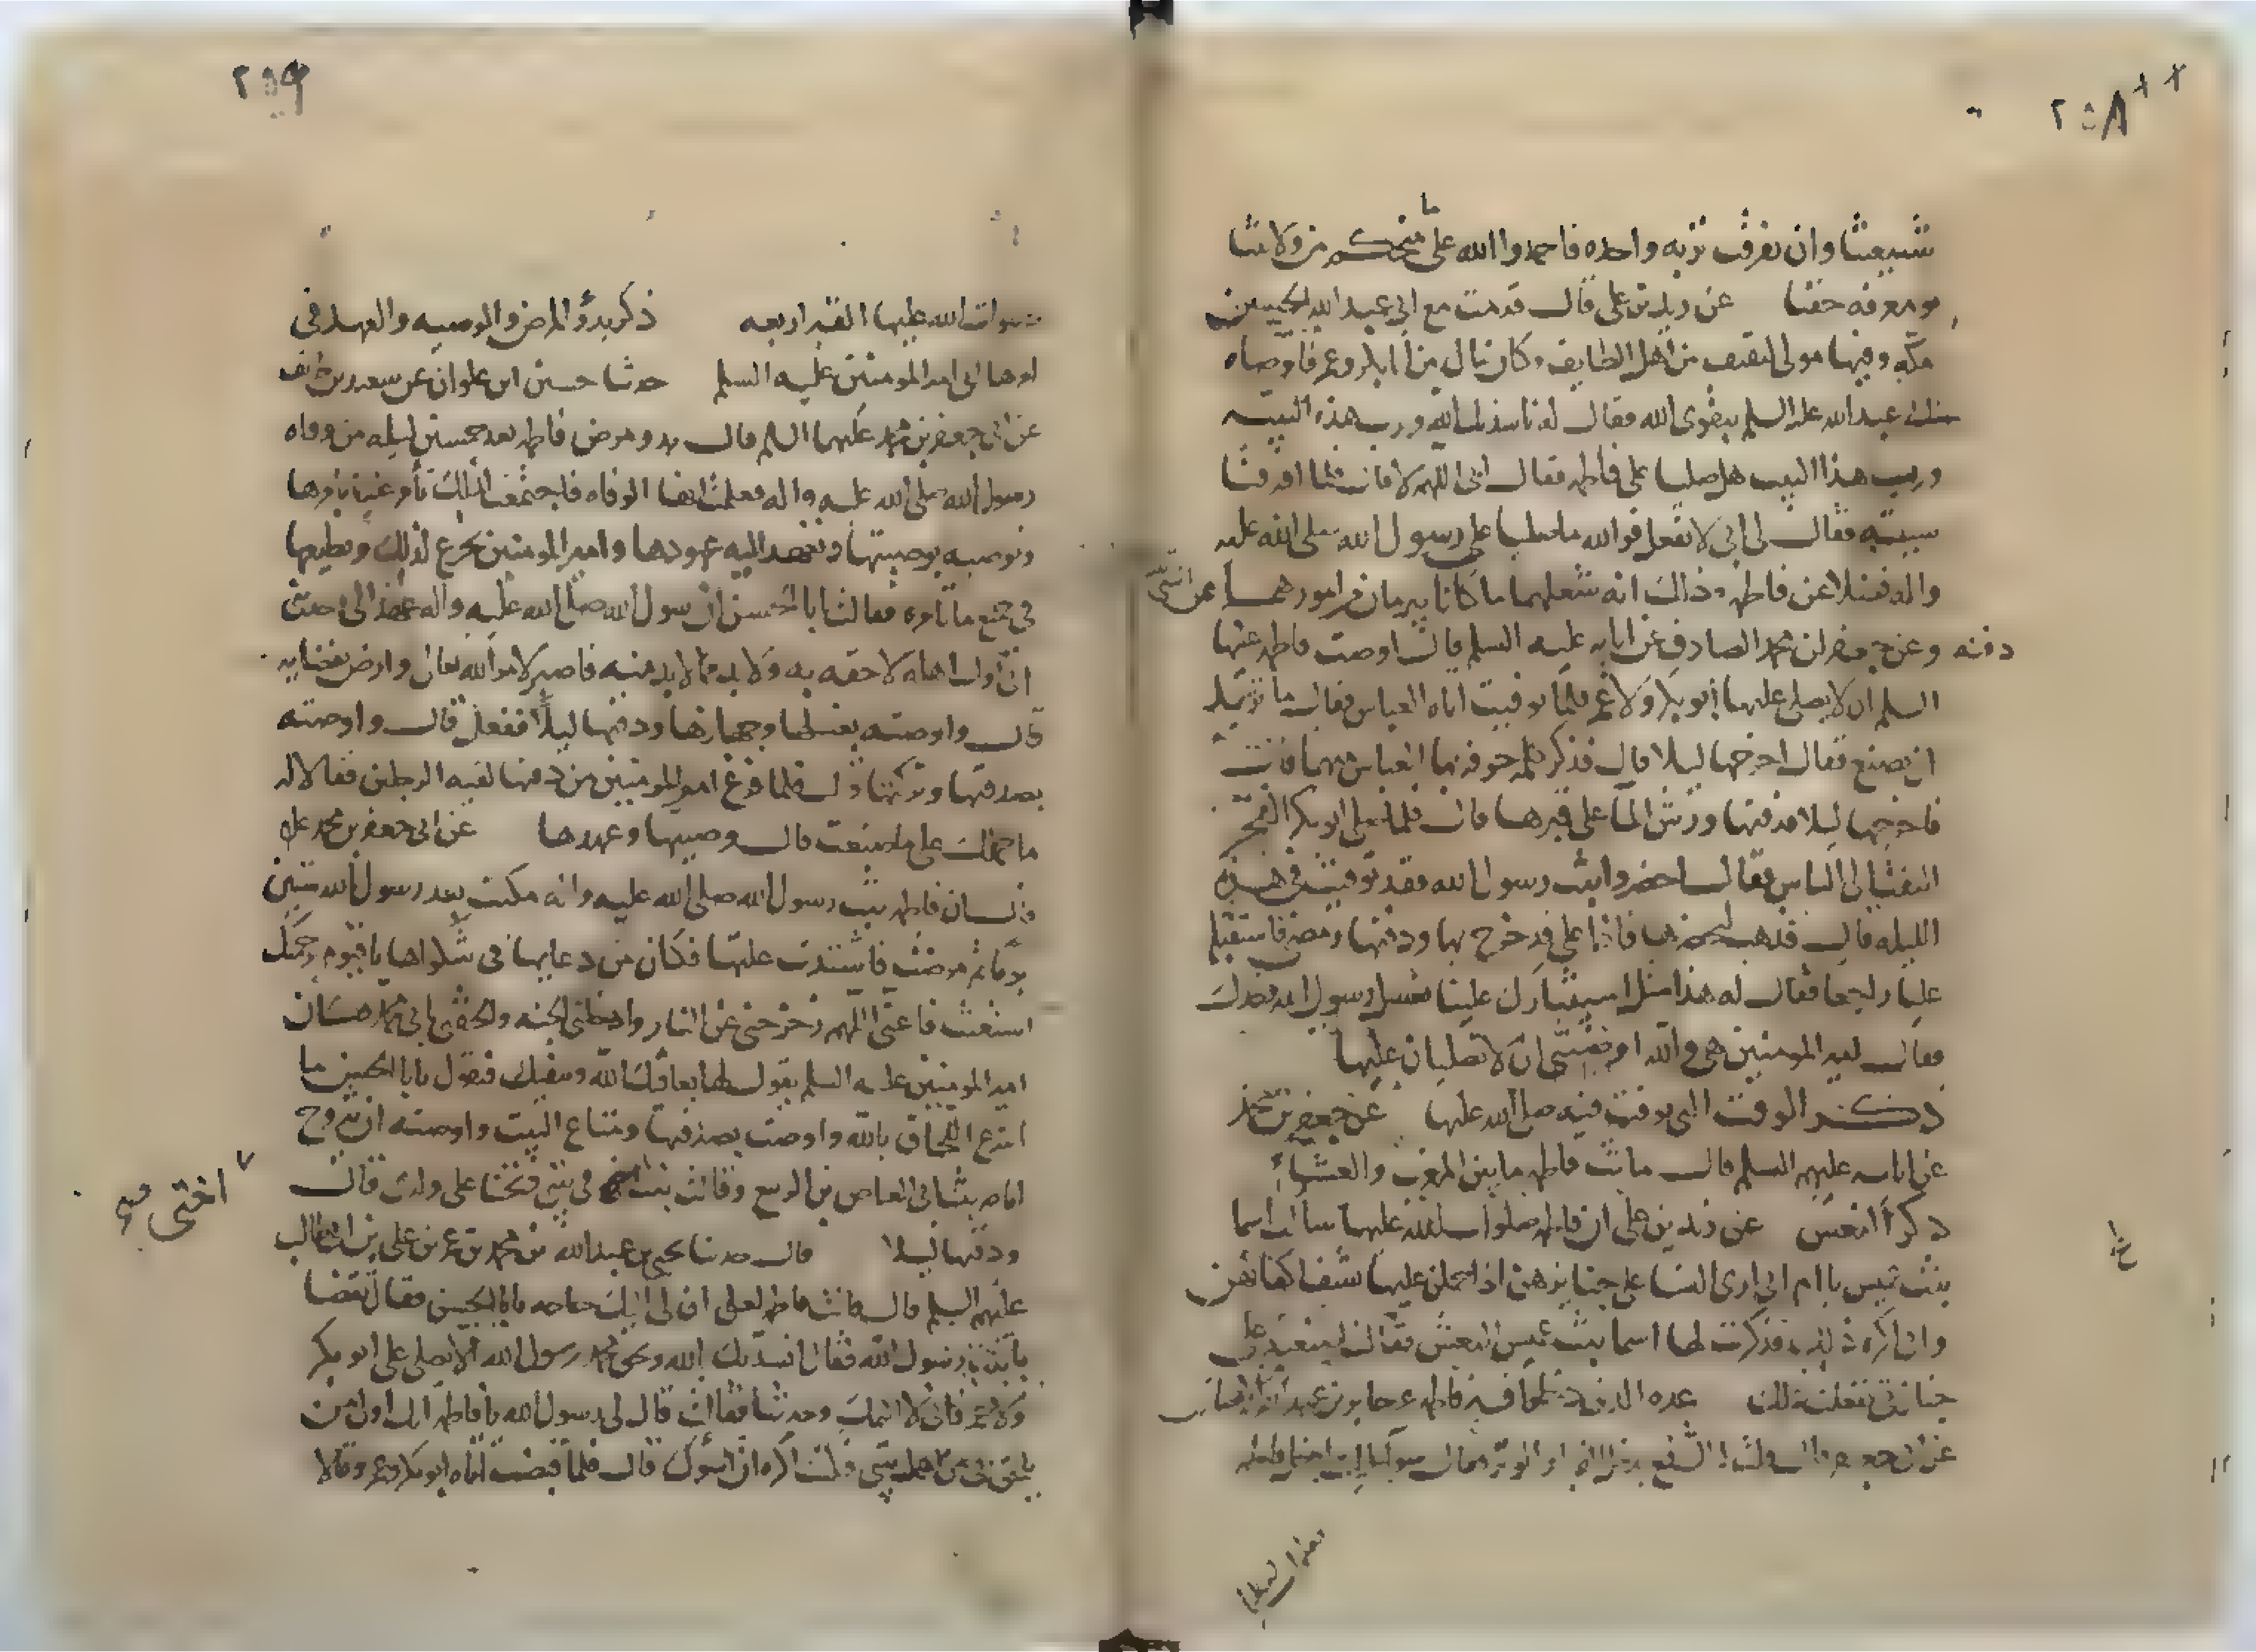 ٢٥٨
شيعتنا وان تفرقت تربه واحده فاحمدوا الله على ما منحكم من ولايتنا
ومعرفه حقنا عن زيد بن على قال قدمت مع ابى عبد الله الحسين
مكه وفيها مولى لثقيف من اهل الطايف وكان ينال من ابى بكر وعمر فاوصاه
عبد الله عليه السلم بتقوى الله فقال له ناشدتك الله ورب هذه البنيه
ورب هذا البيت هل صليا على فاطمه فقال ابى اللهم لا قال فلما افترقنا
سببته فقال لى ابى لا تفعل فوالله ما صليا على رسول الله صلى الله عليه
واله فضلا عن فاطمه وذلك انه شغلهما ما كانا يبرمان من امورهما عن
دفنه وعن جعفر ابن محمد الصادق عن ابايه عليه السلم قال اوصت فاطمه عليها
السلم ان لا يصلى عليها ابو بكر ولا عمر فلما توفيت اتاه العباس فقال ما تريد
ان تصنع فقال اخرجها ليلا قال فذكر كلمه خوفه بها العباس منهما قال
فاخرجها ليلا فدفنها ورش الما على قبرها قال فلما صلى ابو بكر الفجر
التفت الى الناس فقال احضروا بنت رسول الله فقد توفيت فى هذه
الليله قال فذهب ليحضرها فاذا على قد خرج بها ودفنها ومضى فاستقبل
عليا راجعا فقال له هذا مثل استيثارك علينا بغسل رسول الله وحدك
فقال امير المومنين هى والله اوصتنى ان لا تصليان عليها
ذكر الوقت التى توفت فيه صلى الله عليها عن جعفر بن محمد
عن ابايه عليهم السلم قال ماتت فاطمه ما بين المغرب والعشاء
ذكر النعش عن زيد بن على ان فاطمه صلوات الله عليها سالت اسما
بنت عميس يا ام انى ارى النسا على جنايزهن اذا حملن عليها تشف اكفانهن
وانى اكره ذلك فذكرت لها اسما بنت عميس النعش فقالت اصنعيه على
جنازتى ففعلت ذلك عده الذين
٢٥٩
صلوات الله عليها القبر اربعه ذكر بدؤ المرض والوصيه والعهد فى
امرها الى امير المومنين عليه السلم حدثنا حسين ابن علوان عن سعد بن طريف
عن ابى جعفر بن محمد عليهما السلم قال بدو مرض فاطمه بعد خمسين ليله من وفاه
رسول الله صلى الله عليه واله فعلمت انها الوفاه فاجتمعت لذلك تأمر عليا بأمرها
وتوصيه بوصيتها وتعهد اليه عهودها وامير المومنين يجزع لذلك ويطيعها
فى جميع ما تامره فقالت يا ابا الحسن ان رسول الله صلى الله عليه واله عهد الى وحدثنى
انى اول اهله لاحقه به ولا بد مما لا بد منه فاصبر لامر الله تعالى وارض بقضايه
قال واوصته بغسلها وجهازها ودفنها ليلا ففعل قال واوصته
بصدقتها وتركتها قال فلما فرغ امير المومنين من دفنها لقيه الرجلين فقالا له
ما حملك على ما صنعت قال وصيتها وعهدها عن ابى جعفر بن محمد عليه
قال ان فاطمه بنت رسول الله صلى الله عليه واله مكثت بعد رسول الله ستين
يوما ثم مرضت فاشتدت عليها فكان من دعايها فى شكواها يا قيوم برحمتك
استغثت فاغثنى اللهم زحزحنى عن النار وادخلنى الجنه والحقنى بابى محمد
امير المومنين عليه السلم يقول لها يعافيك الله ويبقيك فتقول يا ابا الحسن ما
اسرع اللحاق بالله واوصت بصدقتها ومتاع البيت واوصته ان يتزوج
امامه بنت ابى العاص بن الربيع وقالت بنت اختى فى بيتى وتحننا على ولدى قال
اختى
ودفنها ليلا قال حدثنا يحيى بن عبد الله بن محمد بن عمر بن على بن ابى طالب
عليهم السلم قال قالت فاطمه لعلى ان لى اليك حاجه يا ابا الحسن فقال تقضا
يا بنت رسول الله فقالت انشدتك بالله وبحق محمد رسول الله الا يصلى على ابو بكر
ولا عمر فانى لا اكتمك حديثا فقالت قال لى رسول الله يا فاطمه انك اول من
يلحق بى من اهل بيتى فكنت اكره ان اسوك قال فلما قبضت اتاه ابو بكر وعمر وقالا